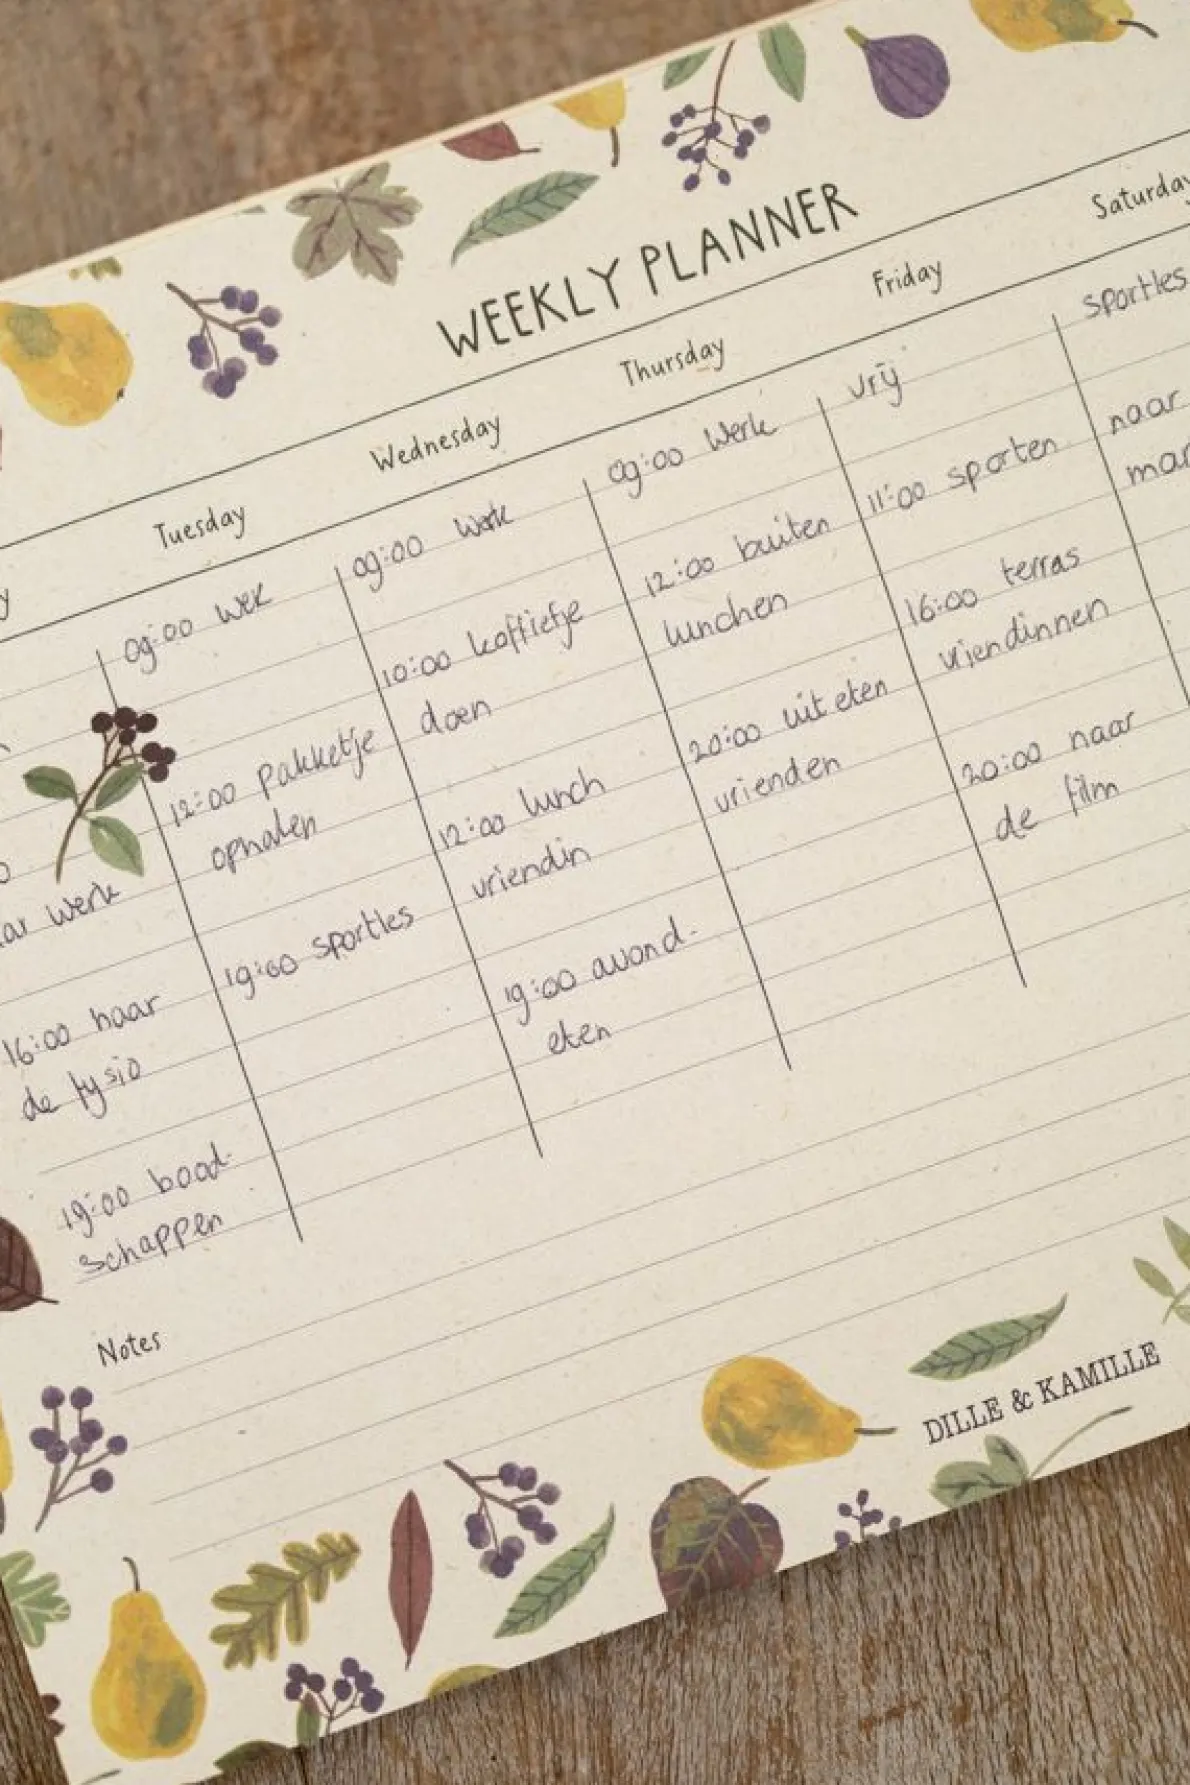 WEEKLY PLANNER
werk
16:00 naar
de fysio
19:00 bood-
schappen
Tuesday
09:00 wek
12:00 pakketje
ophalen
19:00 sportles
Wednesday
09:00 werk
10:00 koffietje
doen
12:00 lunch
vriendin
19:00 avond-
eten
Thursday
09:00 werk
12:00 buiten
lunchen
20:00 uit eten
vrienden
Friday
vrij
11:00 sporten
16:00 terras
vriendinnen
20:00 naar
de film
Saturday
sportles
naar
Notes
DILLE & KAMILLE